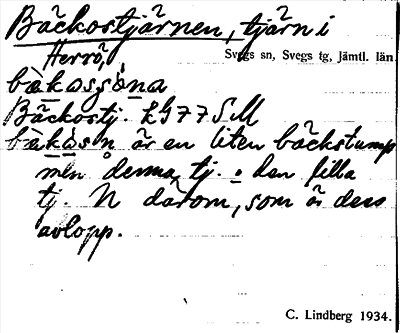 Bäckostjärnen, tjärn i
Herrö,
Svegs sn, Svegs tg, Jämtl. län
bækossǫ́na
Bäckostj. LG77SM
bækòsn är en liten bäckstump
men denna tj. o. den lilla
tj. N därom, som är dess
avlopp.
C. Lindberg 1934.